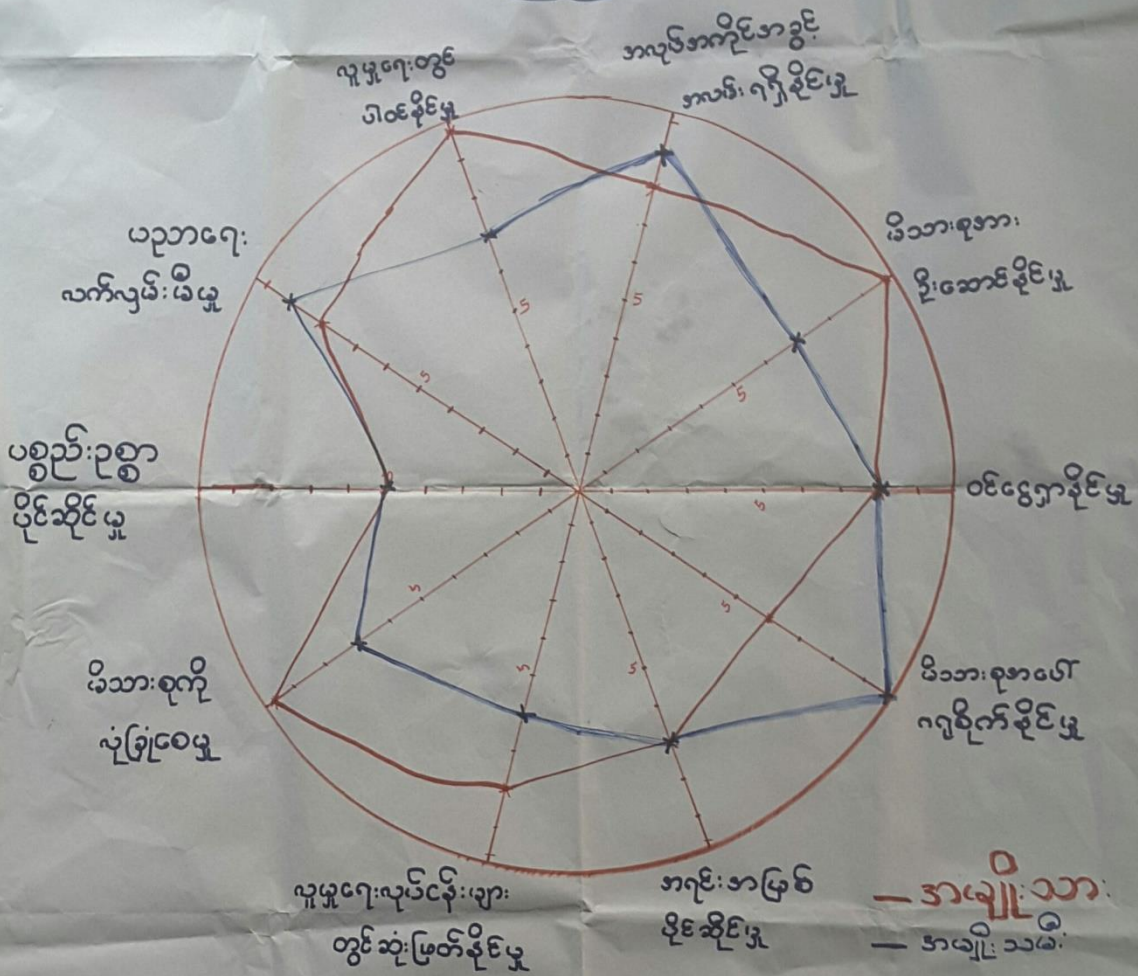 လူမှုရေးတွင်
ပါဝင်နိုင်မှု
အလုပ်အကိုင်အခွင့်
အလမ်းရရှိနိုင်မှု
မိသားစုအား
ဦးဆောင်နိုင်မှု
ဝင်ငွေရှာနိုင်မှု
မိသားစုအပေါ်
ဂရုစိုက်နိုင်မှု
အရင်းအမြစ်
ပိုင်ဆိုင်မှု
လူမှုရေးလုပ်ငန်းများ
တွင်ဆုံးဖြတ်နိုင်မှု
မိသားစုကို
လုံခြုံစေမှု
ပစ္စည်းဥစ္စာ
ပိုင်ဆိုင်မှု
ပညာရေး
လက်လှမ်းမီမှု
5
5
5
5
5
5
5
5
5
— အမျိုးသား
— အမျိုးသမီး